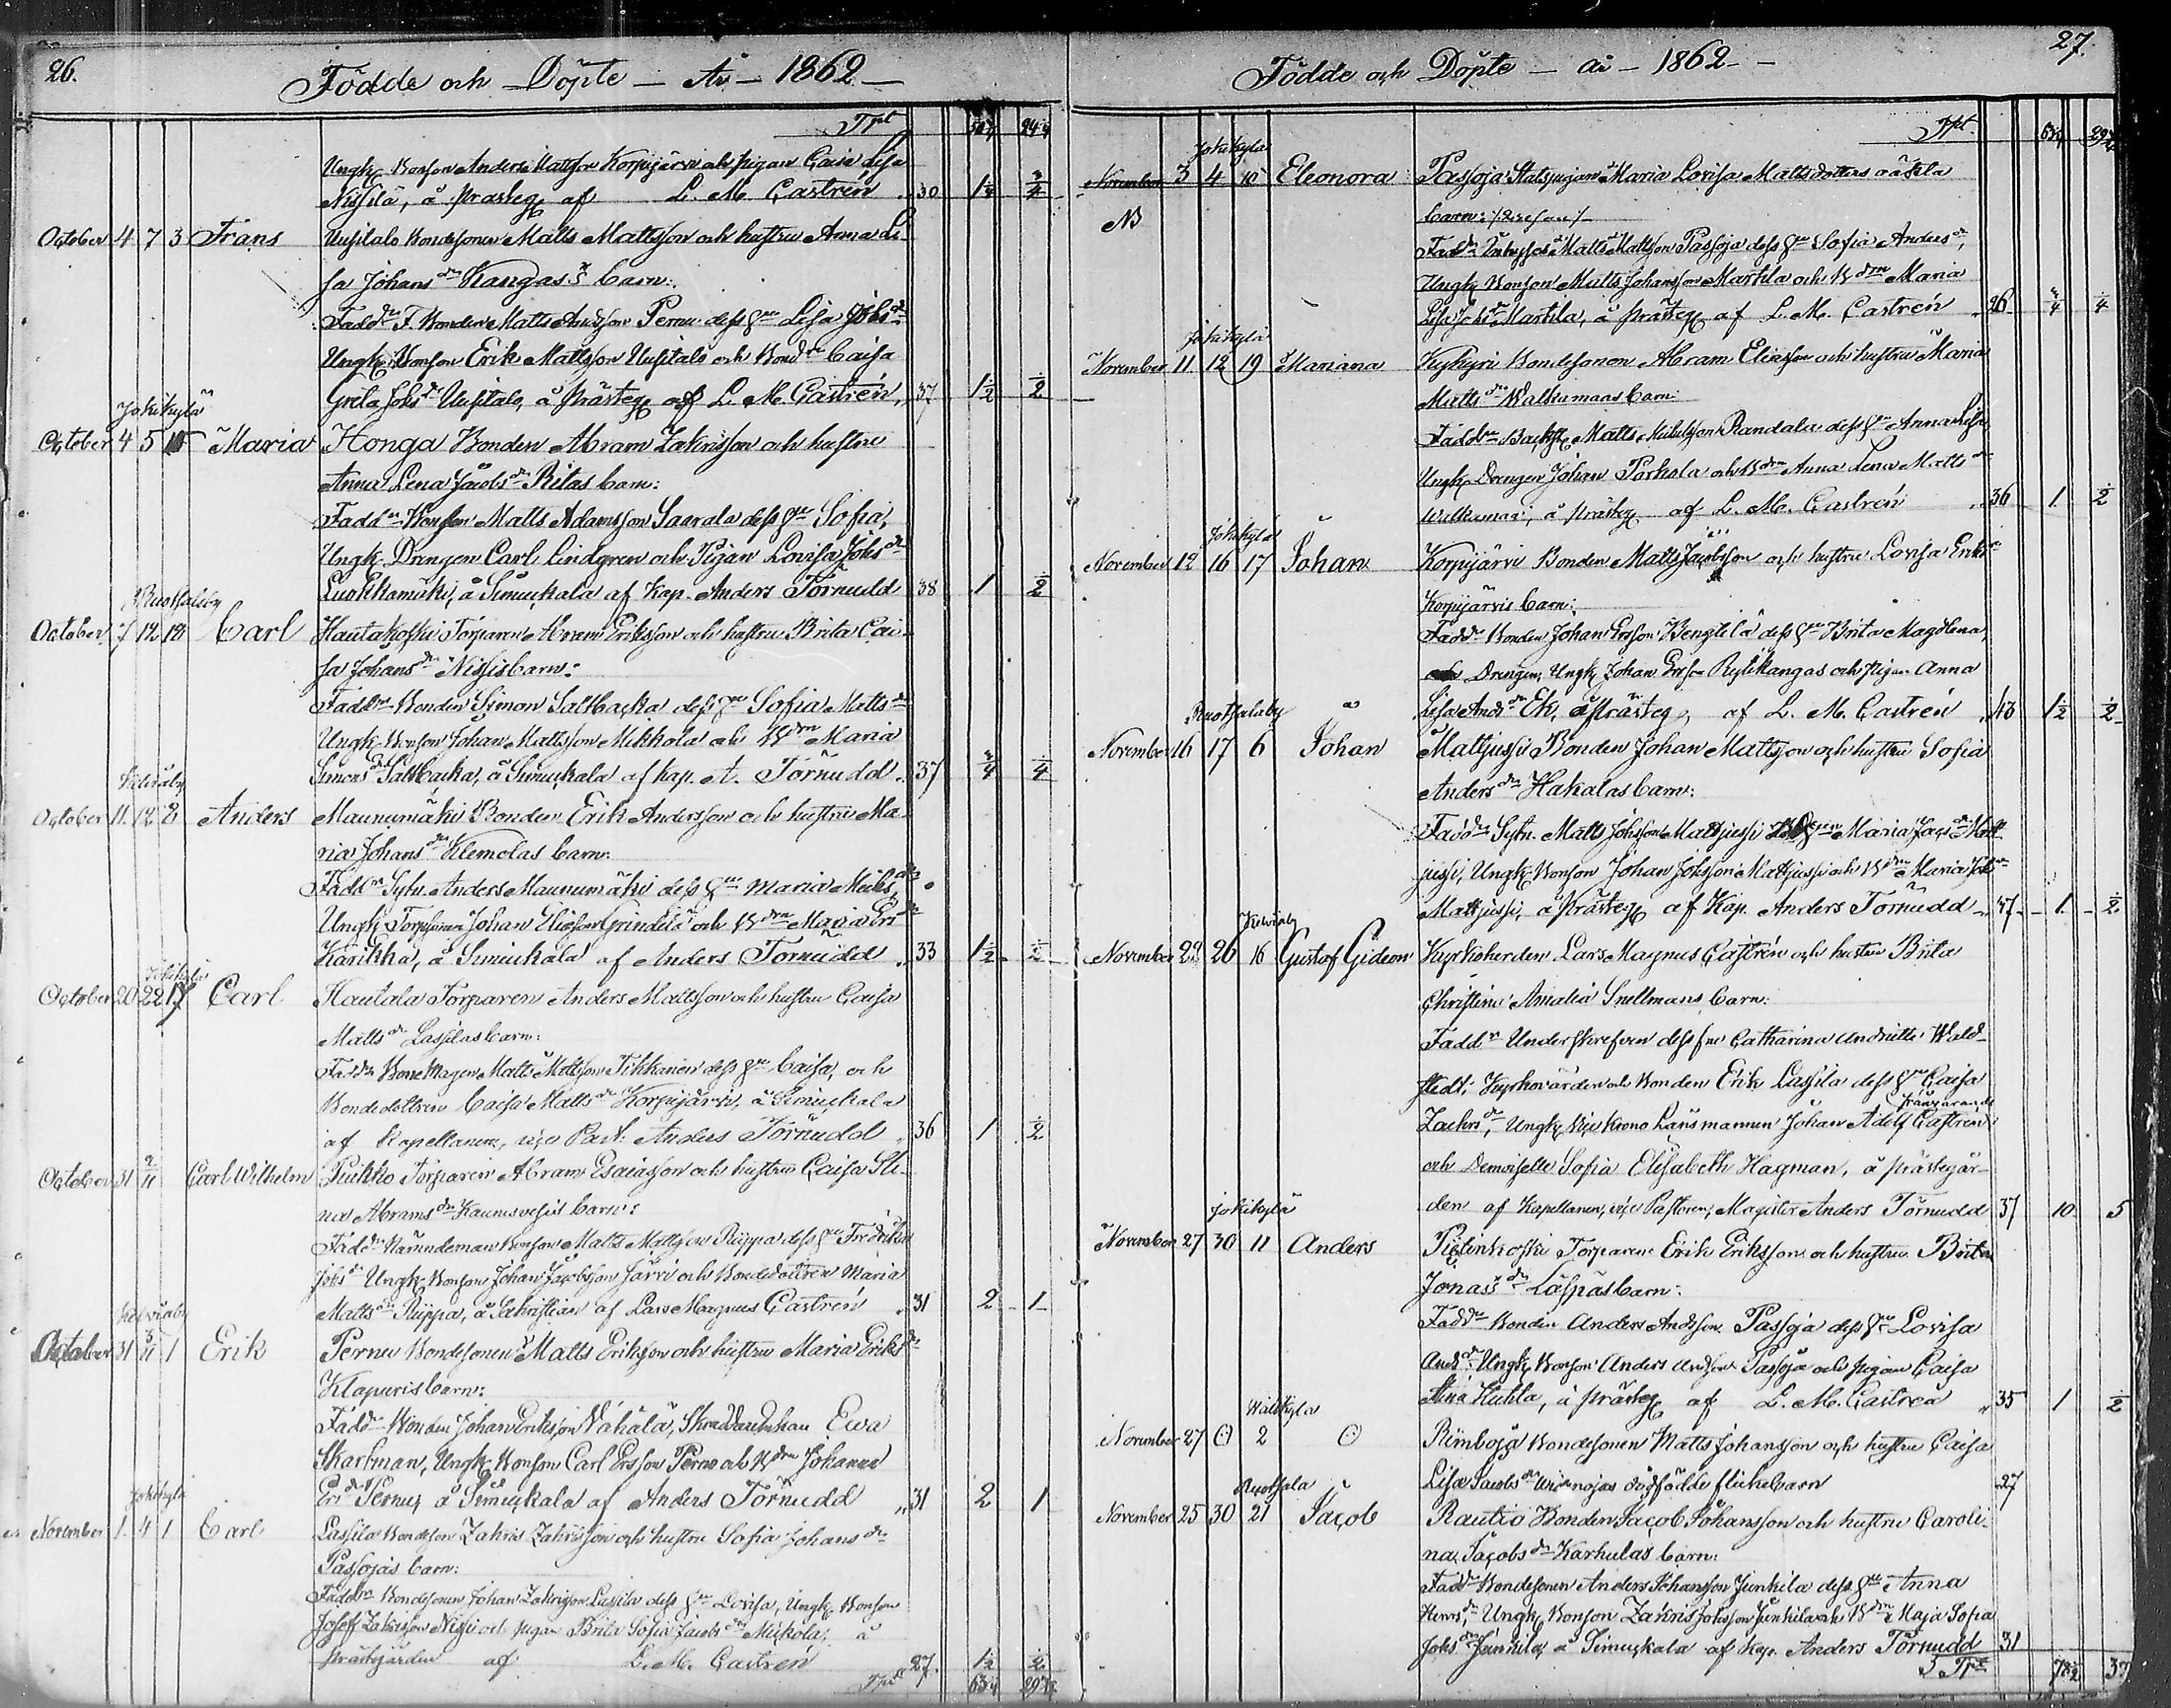 26.
Födde och Döpte — År — 1862 —
Tpt
Ungk. Bonson Anders Mattson Korpijärvi och pigan Caisa Lisa
Nissilä, å prästeg af L. M. Castrén 30 1 3/4
October 4 7 3 Frans Uusitalo Bondesonen Matts Mattsson och hustru Anna Li-
sa Johans dr Kangas's barn:
Fadd. F. Bonden Matts Andsson Pernu dess hu Lisa Johs dr
Ungk. Bonson Erik Mattsson Uusitalo och Bond dr Caisa
Greta Johs dr Uusitalo, å prästeg af L. M. Castrén, 37 1 1/2 1/2
Jokikylä
October 4 5 Maria Honga Bonden Abram Zakrisson och hustru
Anna Lena Jacobs dr Ritas barn:
Fadd. Bonson Matts Adamsson Saarala dess hu Sofia,
Ungk. Drengen Carl Lindgren och Pigan Lovisa Johs dr
Luokkamäki, å Simuckala af Kap. Anders Törnudd 38 1 1/2
Ruotsalaby
October 7 12 Carl Hautakoski Torparen Abram Eriksson och hustru Brita Cai-
sa Johans dr Nissis barn:
Fadd. Bonden Simon Saltbacka dess hu Sofia Matts dr
Ungk. Bonson Johan Mattsson Mikkola och B drn Maria
Simons dr Saltbacka, å Simuckala af Kap. A. Törnudd. 37 3/4 1/4
October 11 12 2 Anders Maunumäki Bonden Erik Andersson och hustru Ma-
ria Johans dr Klemolas barn:
Fadd. Sytn. Anders Maunumäki dess hu Maria
Ungk. Johan Eliasson Grindelä och B drn Maria Ers dr
Karikka, å Simuckala af Anders Törnudd 33 1 1/2 1/2
October 20 22 17 Carl Hautala Torparen Anders Mattsson och hustru Caisa
Matts dr Lassilas barn:
Fadd. Matts Mattsson Tikkanen dess hu Caisa, och
Bondedottren Caisa Matts dr Korpijärvi, å Simuckala
af Kapellanen, vice Past: Anders Törnudd 36 1 1/2
October 31 2/11 Carl Wilhelm Puikko Torparen Abram Esaiasson och hustru Caisa Sti-
na Abrams dr Kaunisvesis barn:
Fadd. Bonson Matts Mattsson Riippa dess hu Fredrika
Johs dr Ungk. Bonson Johan Jacobsson Järvi och Bondedottren Maria
Matts dr Riippa, å Sakristian af Lars Magnus Castrén 31 2 1
October 31 3/11 1 Erik Pernu Bondesonen Matts Eriksson och hustru Maria Eriks dr
Klapuris barn:
Fadd. Bonden Johan Eriksson Vähälä, Ewa
Skarfman, Ungk. Bonson Carl Ersson Pernu och B drn Johanna
Ers dr Pernu, å Simuckala af Anders Törnudd 31 2 1
Jokikylä
November 1 4 1 Carl Lassila Bondeson Zakris Zakrisson och hustru Sofia Johans dr
Passojas barn:
Fadd. Bondesonen Johan Zakrisson Lassila dess hu Lovisa, Ungk. Bonson
Josef Zakrisson Nissi och pigan Brita Sofia Jacobs dr Mickola, å
prästgården af L. M. Castrén 27 1 1/2 1/2
Tpt
27.
Födde och Döpte — År — 1862 —
Tpt
Jokikylä
November 3 4 10 Eleonora Passoja Statspigan Maria Lovisa Mattsdotters oäkta
NB barn:
Fadd. Matts Mattsson Passoja dess hu Sofia Anders dr,
Ungk. Bonson Matts Johansson Martila och B drn Maria
Lisa Johs dr Martila, å prästeg af L. M. Castrén 26 3/4 1/4
Jokikylä
November 11 12 19 Mariana Kykyri Bondesonen Abram Eliasson och hustru Maria
Matts dr Walkamaas barn:
Fadd. Matts Randala dess hu Anna Lisa
Ungk. Drengen Johan Porkola och B drn Anna Lena Matts dr
Walkamaa, å prästeg af L. M. Castrén 36 1 1/2
Jokikylä
November 12 16 17 Johan Korpijärvi Bonden Matts Jacobsson och hustru Lovisa Eriks dr
Korpijärvis barn:
Fadd. Bonden Johan Ersson Bengtilä dess hu Brita Magdlena,
Drengen, Ungk. Johan Ersson Rytikangas och pigan Anna
Lisa Ands dr Ek, å prästeg, af L. M. Castrén 43 1 1/2 1/2
Ruotsalaby
November 16 17 6 Johan Mattjussi Bonden Johan Mattsson och hustru Sofia
Anders dr Hakalas barn:
Fadd. Sytn. Matts Johsson Mattjussi Maria Jacs dr Matt-
jussi, Ungk. Bonson Johan Johsson Mattjussi och B drn Maria Johs dr
Mattjussi, å Prästeg af Kap. Anders Törnudd 37 1 1/2
November 22 26 16 Gustaf Gideon Kyrkoherden Lars Magnus Castrén och hustru Brita
Christina Amalia Snellmans barn:
Fadd. Underskrefven dess fru Catharina Andriette Wald-
stedt; Kyrkovärden och Bonden Erik Lassila dess hu Caisa
Zachrs dr, Ungk. Vice Krono Länsmannen Johan Adolf Castrén frånvarande
och Demoiselle Sofia Elisabeth Hagman, å prästegår-
den af Kapellanen, vice Pastoren, Magister Anders Törnudd 37 10 5
Jokikylä
November 27 30 11 Anders Pietinkoski Torparen Erik Eriksson och hustru Brita
Jonas dr Laspas barn:
Fadd. Bonden Anders Andsson Passoja dess hu Lovisa
Ands dr Ungk. Bonson Anders Andsson Passoja och pigan Caisa
Stina Kuhla, å prästeg af L. M. Castrén 35 1 1/2
November 27 2 Rimboja Bondesonen Matts Johansson och hustru Caisa
Lisa Jacobs dr dödfödde flickebarn 27
Ruotsala
November 25 30 21 Jacob Rautio Bonden Jacob Johansson och hustru Caroli-
na Jacobs dr Karhulas barn:
Fadd. Bondesonen Anders Johansson Junkila dess hu Anna
Henrs dr Ungk. Bonson Zakris Johsson Junkila och B drn Maja Sofia
Johs dr Junkila, å Simuckala af Kap. Anders Törnudd 31
Tpt